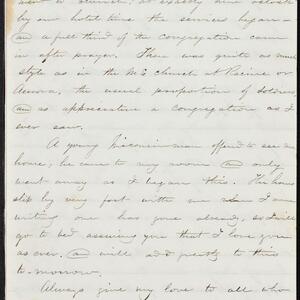 went to church, at exactly ten o'clock
by our hotel time the services began –
and a full third of the congregation came
in after prayer. There was quite as much
style as in the M.E. church at Racine or
Aurora, the usual proportion of soldiers,
and as appreciative a congregation as I
ever saw.
A young Wisconsin man offered to see me
home, he came to my room and only
went away as I began this. The hours
slip by very fast with me when I am
writing one has gone already, so I will
go to bed assuring you that I love you
as ever. and will add greatly to this
to-morrow.
Always give my love to all who